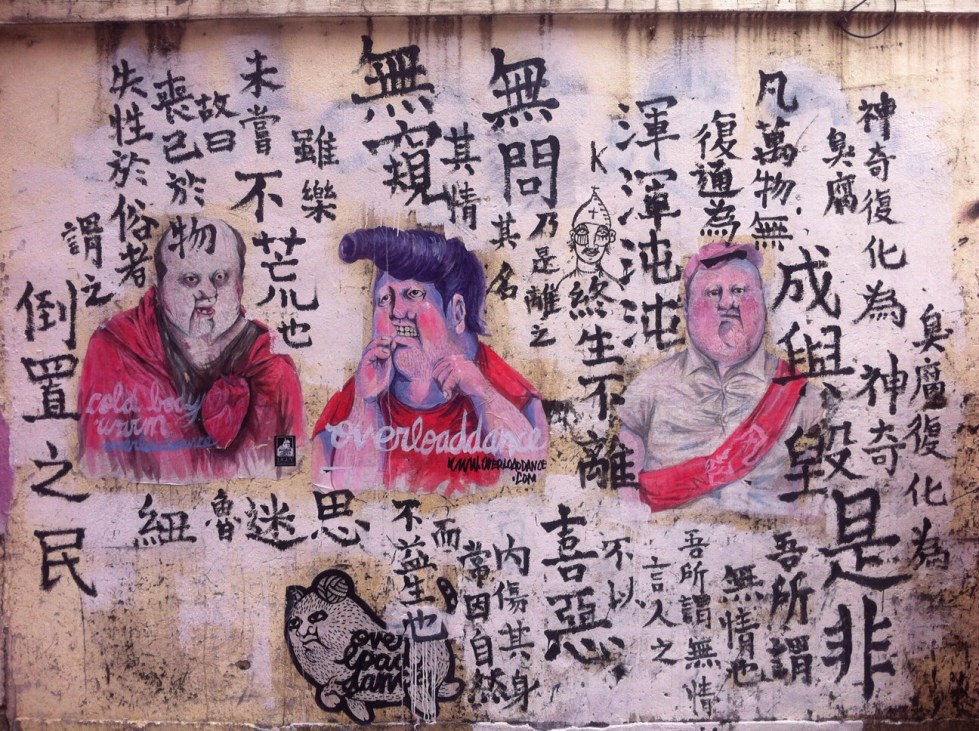 臭腐復化為
神奇
神奇復化為
臭腐
凡萬物無
成與毀
復通為
渾渾沌沌
終生不離
K
乃是離之
無問
其名
無窺
其情
雖樂
未嘗
不荒也
故曰
喪己於物
失性於俗者
謂之
倒置之民
是非
吾所謂
無情也
吾所謂無情
言人之
不以
喜惡
內傷其身
常因自然
而
不益生也
紐魯迷思
cold body
warm
overloaddance
www.overloaddance
.com
over
loead
dance